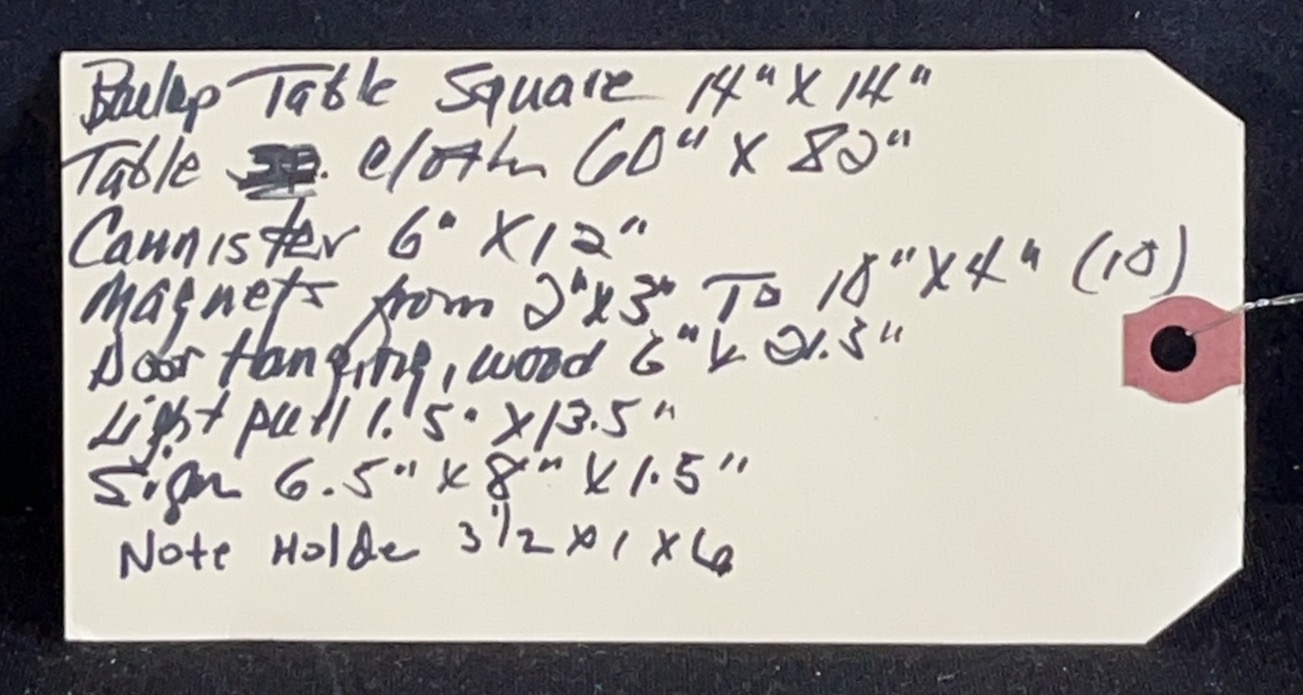 Burlap Table Square 14" X 14"
Table cloth 60" X 82"
Cannister 6" X 12"
Magnets from 2" X 3" To 18" X 4" (10)
Door Hanging, wood 6" X 21.5"
Light pull 1.5" X 13.5"
Sign 6.5" X 8" X 1.5"
Note Holde 3 1/2 X 1 X 6